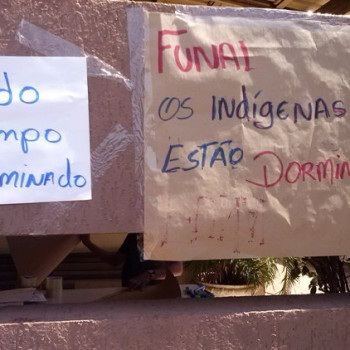 do
mpo
minado
FUNAI
OS INDÍGENAS
ESTÃO
DORMIN